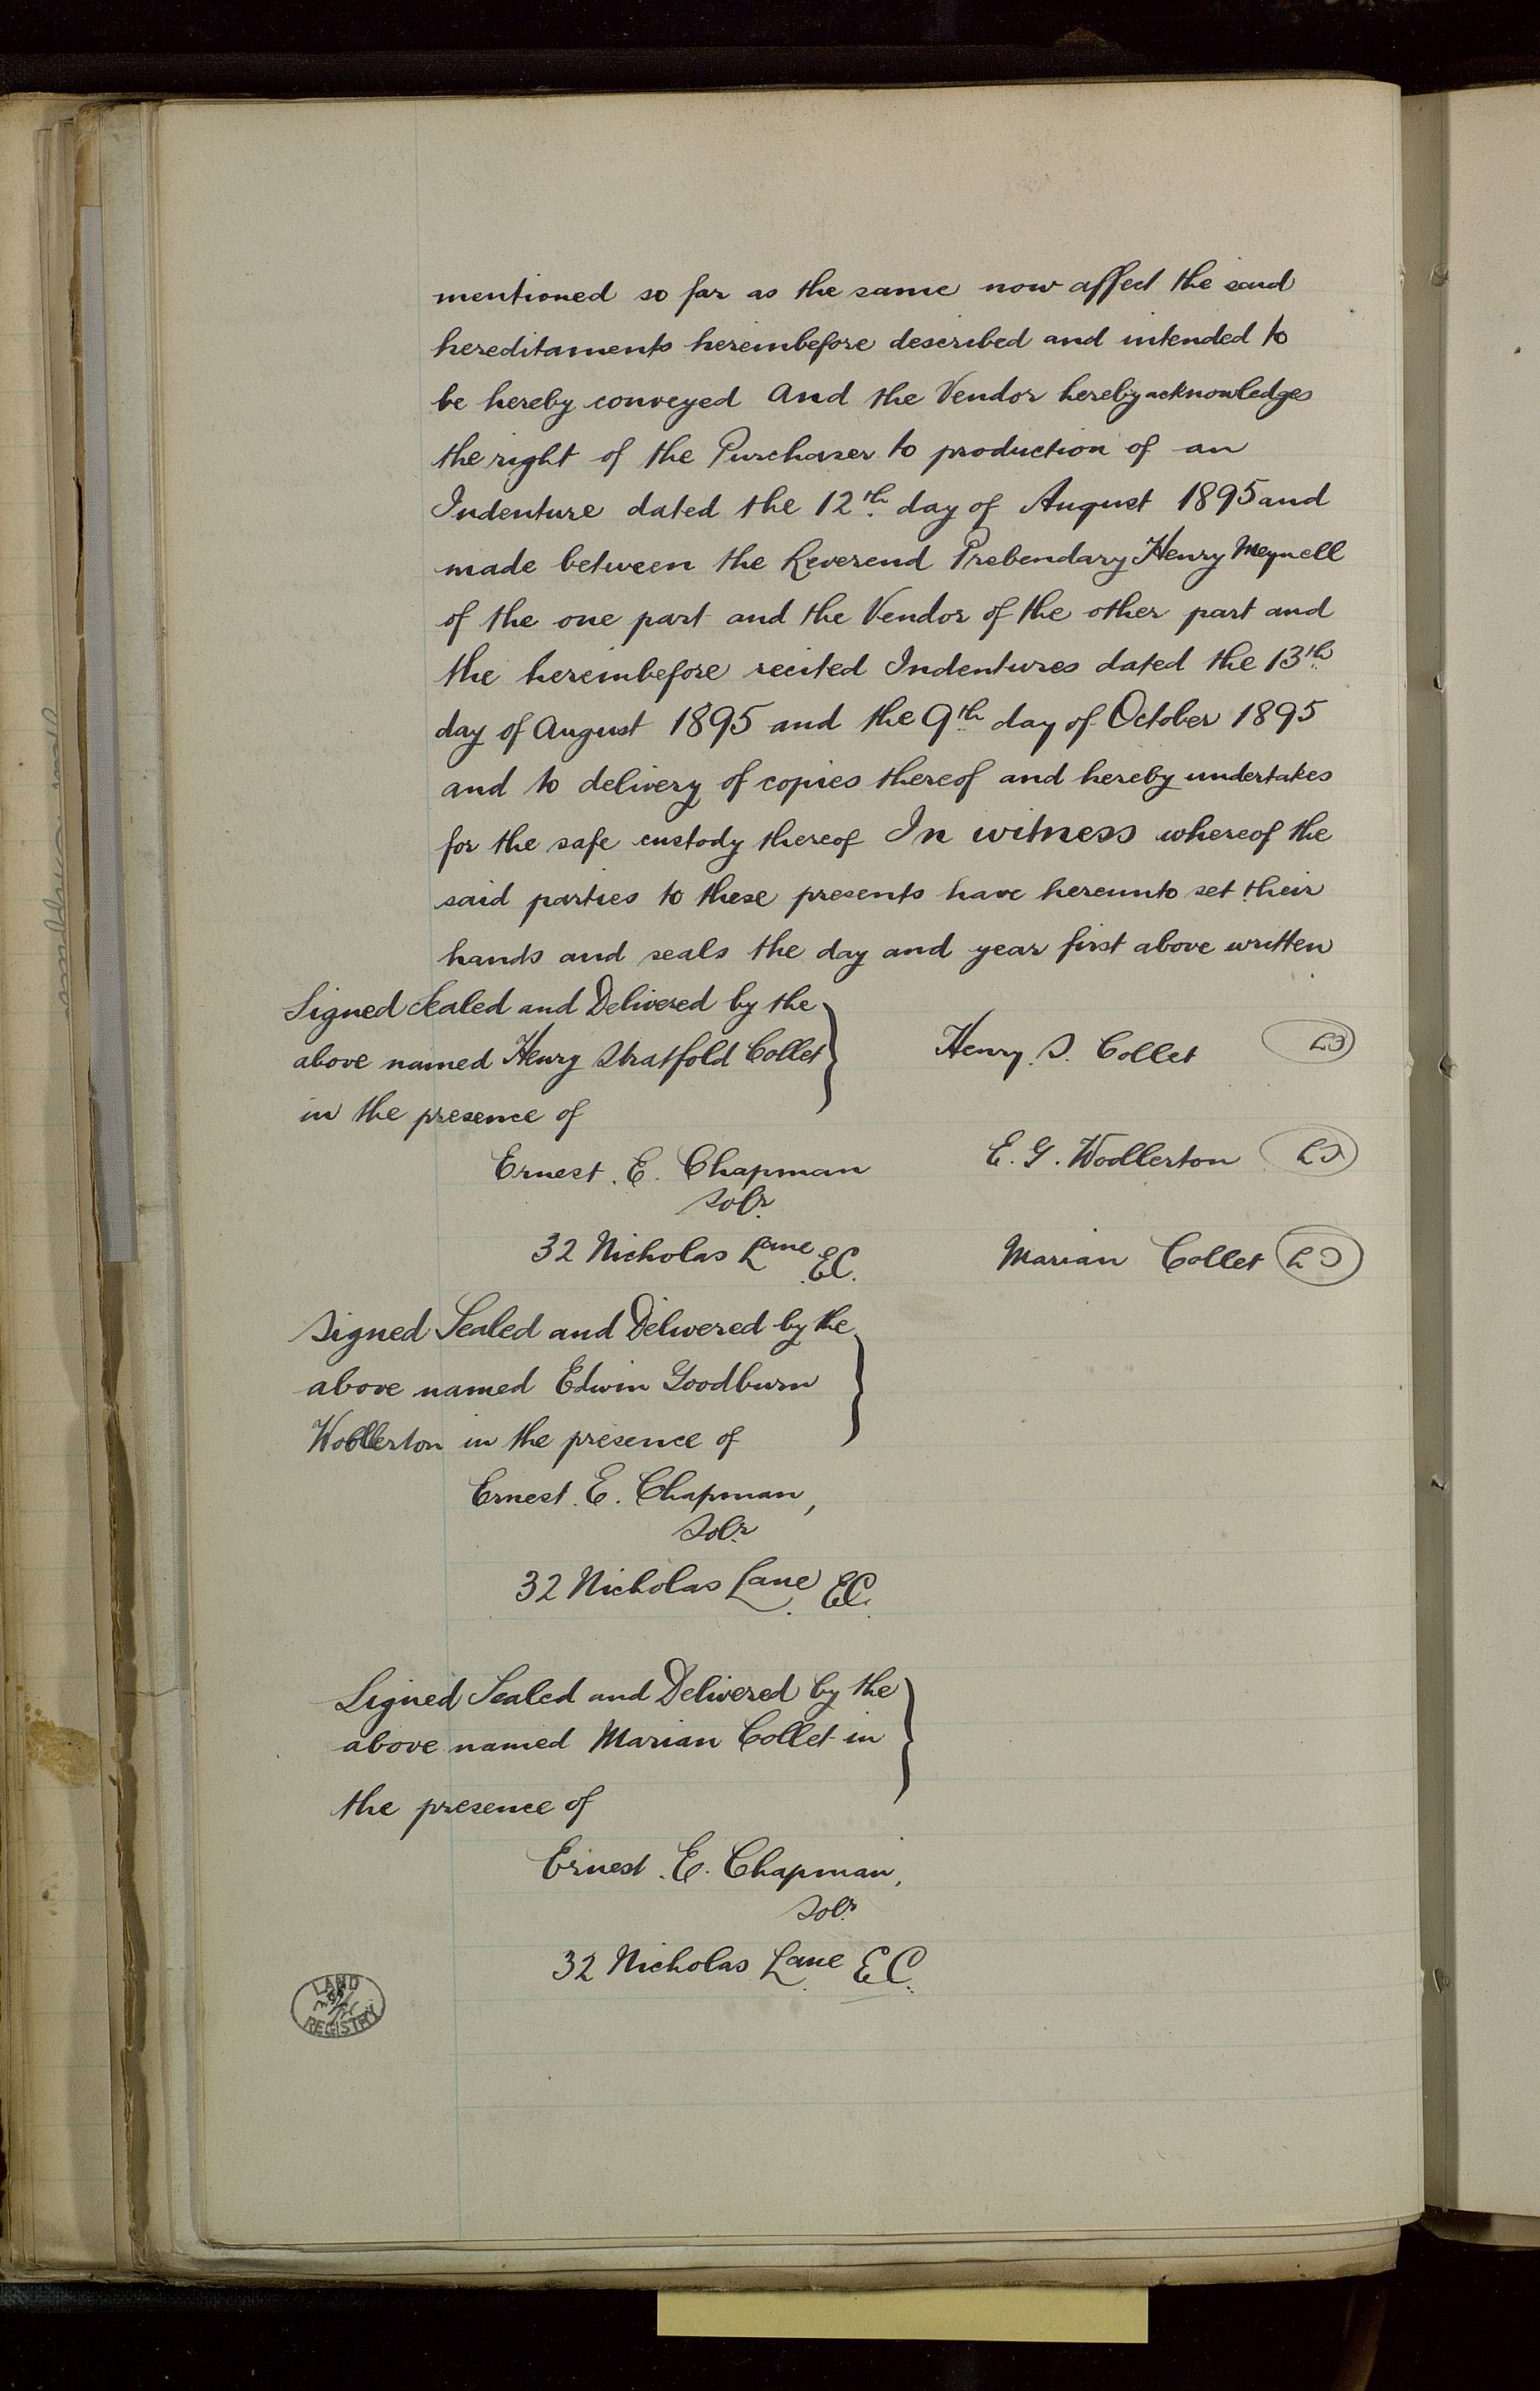 mentioned so far as the same now affect the said
hereditaments hereinbefore described and intended to
be hereby conveyed And the Vendor hereby acknowledges
the right of the Purchaser to production of an
Indenture dated the 12th day of August 1895 and
made between the Reverend Prebendary Henry Meynell
of the one part and the Vendor of the other part and
the hereinbefore recited Indentures dated the 13th
day of August 1895 and the 9th day of October 1895
and to delivery of copies thereof and hereby undertakes
for the safe custody thereof In witness whereof the
said parties to these presents have hereunto set their
hands and seals the day and year first above written
Signed Sealed and Delivered by the
above named Henry Stratfold Collet
in the presence of
Henry. S. Collet LS
Ernest. E. Chapman
Solr.
32 Nicholas Lane E.C.
E. G. Woollerton LS
Marian Collet LS
Signed Sealed and Delivered by the
above named Edwin Goodburn
Woollerton in the presence of
Ernest. E. Chapman,
Solr.
32 Nicholas Lane. E.C.
Signed Sealed and Delivered by the
above named Marian Collet in
the presence of
Ernest. E. Chapman,
Solr.
32 Nicholas Lane. E.C.
LAND
REGISTRY